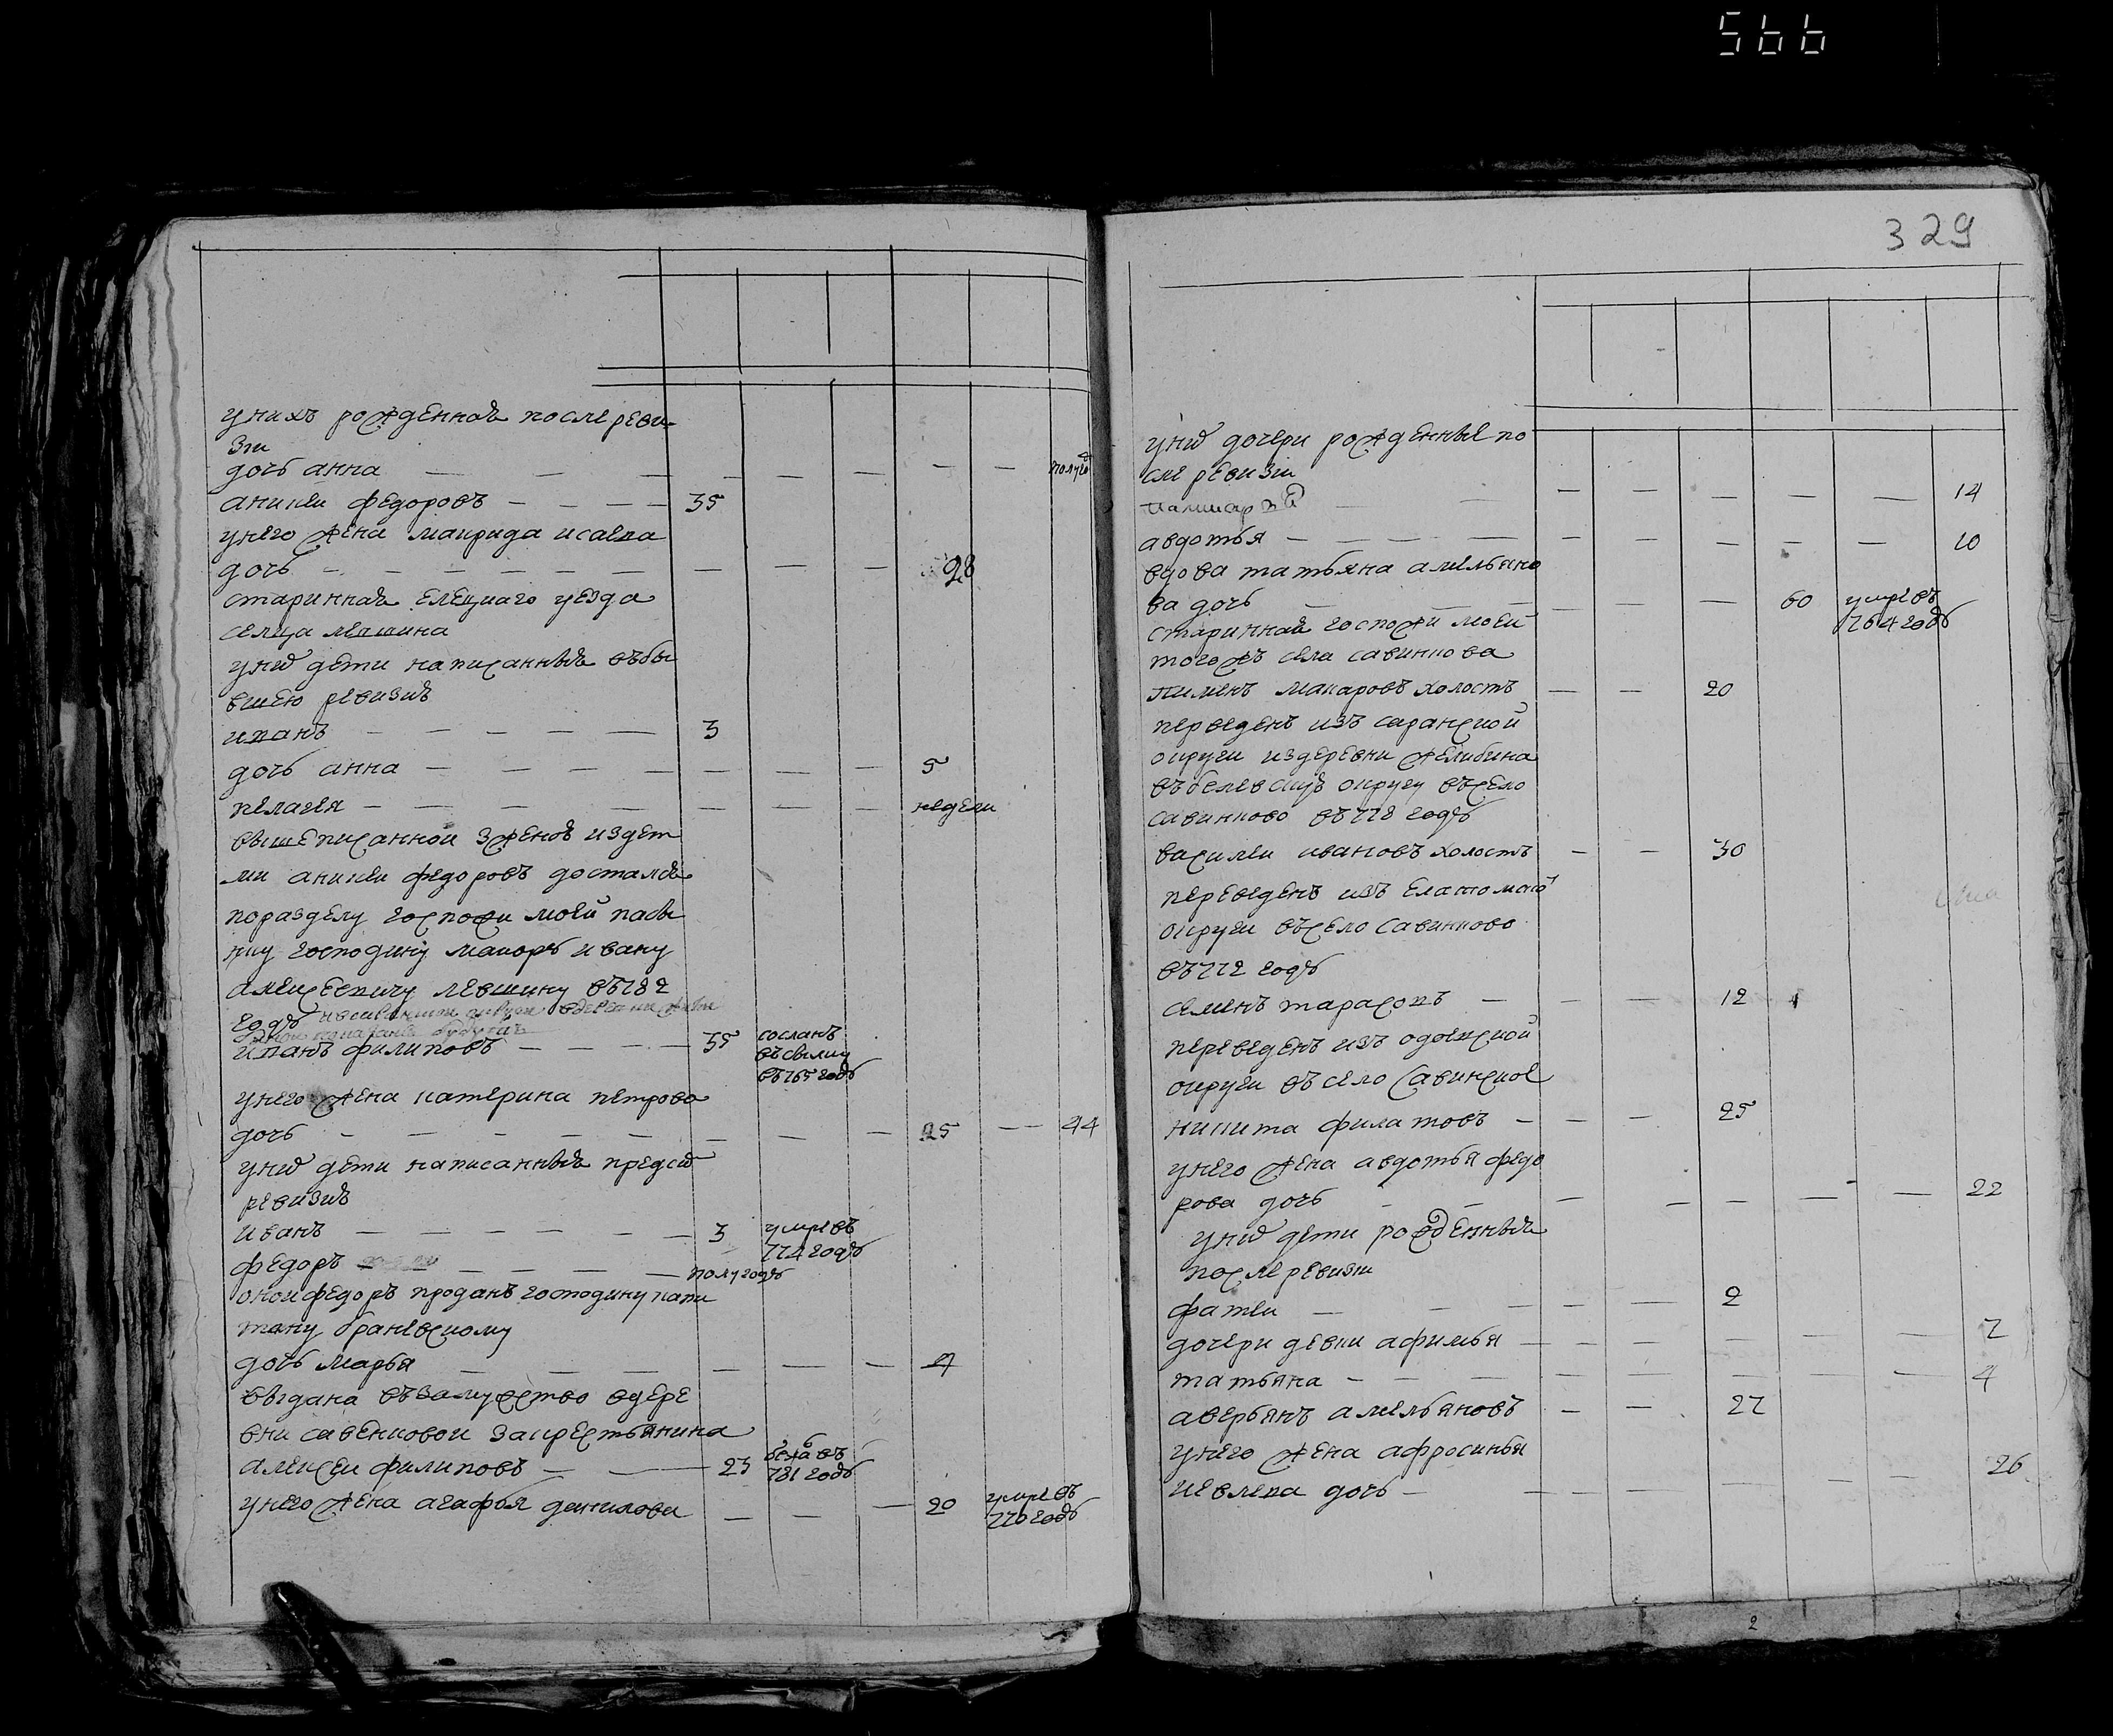 566
329
у нихъ рожденная после реви
зии
дочь анна — — — — — — — — полуго
аникеи федоровъ — — — — 35
у него жена маврида исаева
дочь — — — — — — — — — 28
старинная елецкаго уезда
селца левшина
у них дети написанныя въ бы
вшею ревизию
иванъ — — — — — — 3
дочь анна — — — — — — — — 5
пелагея — — — — — — — недели
вышеписанной з женою и з дет
ми аникеи федоровъ достался
по разделу госпожи моей
господину маиору ивану
алексеевичу левшину въ 782
годъ
иванъ филиповъ — — — — 35 сосланъ
въ
въ 765 годъ
у него жена катерина петрова
дочь — — — — — — — — — 25 — — 44
у ней дети написанныя пред сей
ревизию
иванъ — — — — — — 3 умре въ
774 годъ
федоръ — — — — — полугодъ
оной федоръ проданъ господину капи
тану браневскому
дочь марья — — — — — — 9
выдана въ замужство в дере
вни савенковой за крестьянина
алексеи филиповъ — — 23 бежа въ
781 годъ
у него жена агафья данилова — — — 20 умре въ
770 годъ
у ней дочери рожденные по
сле ревизии
— — — — — 14
авдотья — — — — — — — — — 10
вдова татьяна амельяно
ва дочь — — — — — — 60 умре въ
764 годъ
старинная госпожи моей
тогожъ села савинкова
пименъ макаровъ холостъ — — 20
переведенъ изъ саранской
округи из деревни желибина
въ белевскую округу въ село
савинково въ 778 годъ
василеи ивановъ холостъ — — 30
переведенъ изъ елатомской
округи въ село савинково
въ 772 годъ
семенъ тарасовъ — — — 12
переведенъ изъ одоевской
округи въ село савинское
никита филатовъ — — — 25
у него жена авдотья федо
рова дочь — — — — — — — — 22
у ней дети рожденныя
после ревизии
фатеи — — — — — 2
дочери девки афимья — — — — — — 7
татьяна — — — — — — — — 4
аверьянъ амельяновъ — — 27
у него жена афросинья
иевлева дочь — — — — — — — 26
2